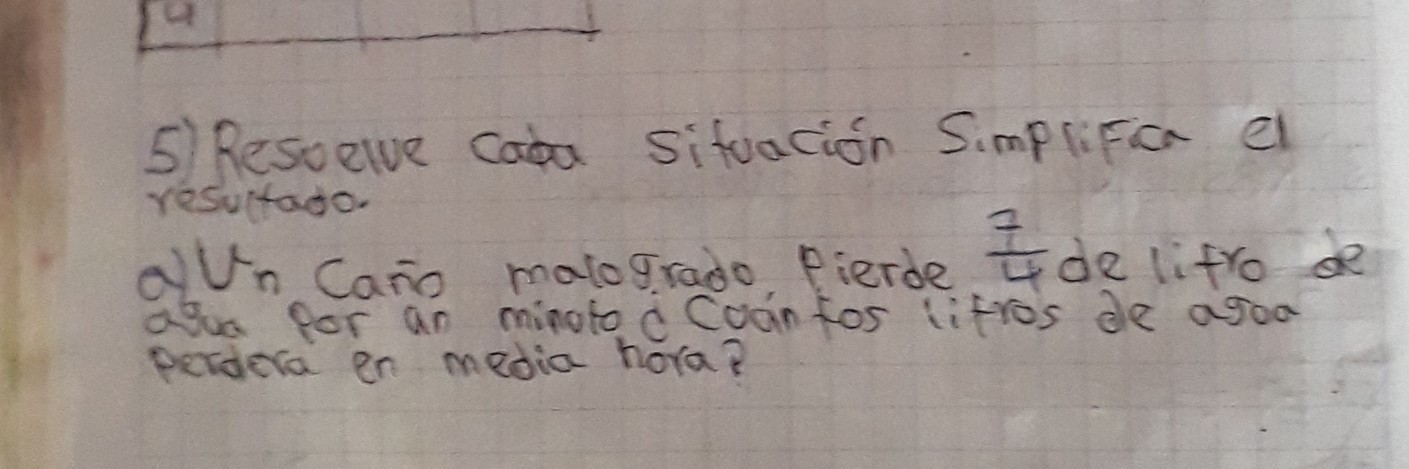 4
5) Resuelve Cada situación Simplifica el
resultado.
a) Un Caño malogrado pierde 7/4 de litro de
agua por an minoto ¿ Cuántos litros de agua
perdera en media hora?